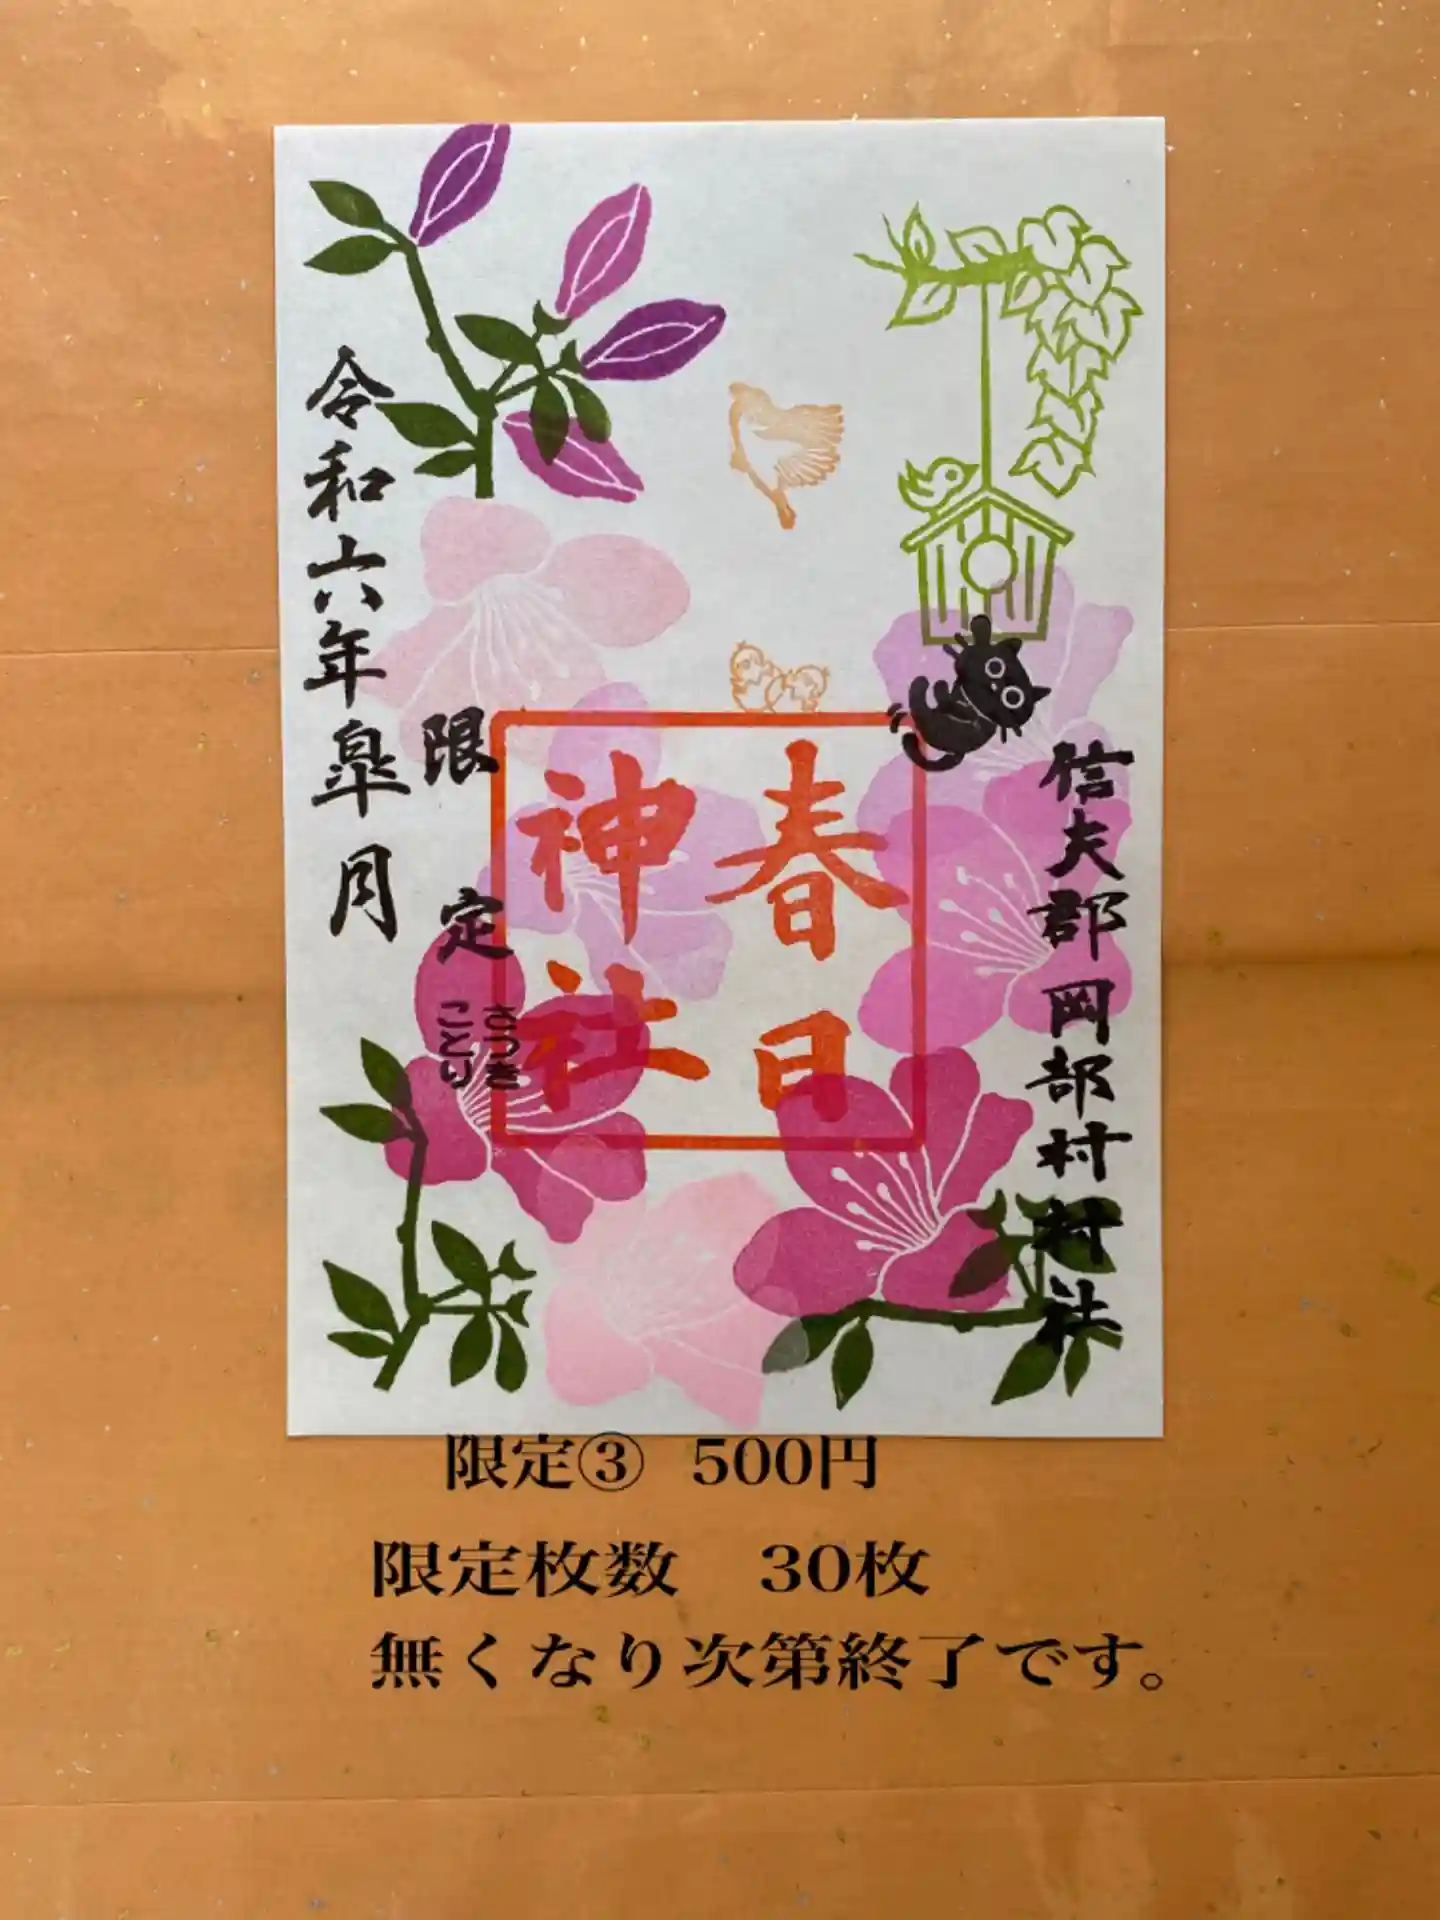 信夫郡岡部村村社
春日
神社
限定
さつき
ことり
令和六年皐月
限定③ 500円
限定枚数 30枚
無くなり次第終了です。